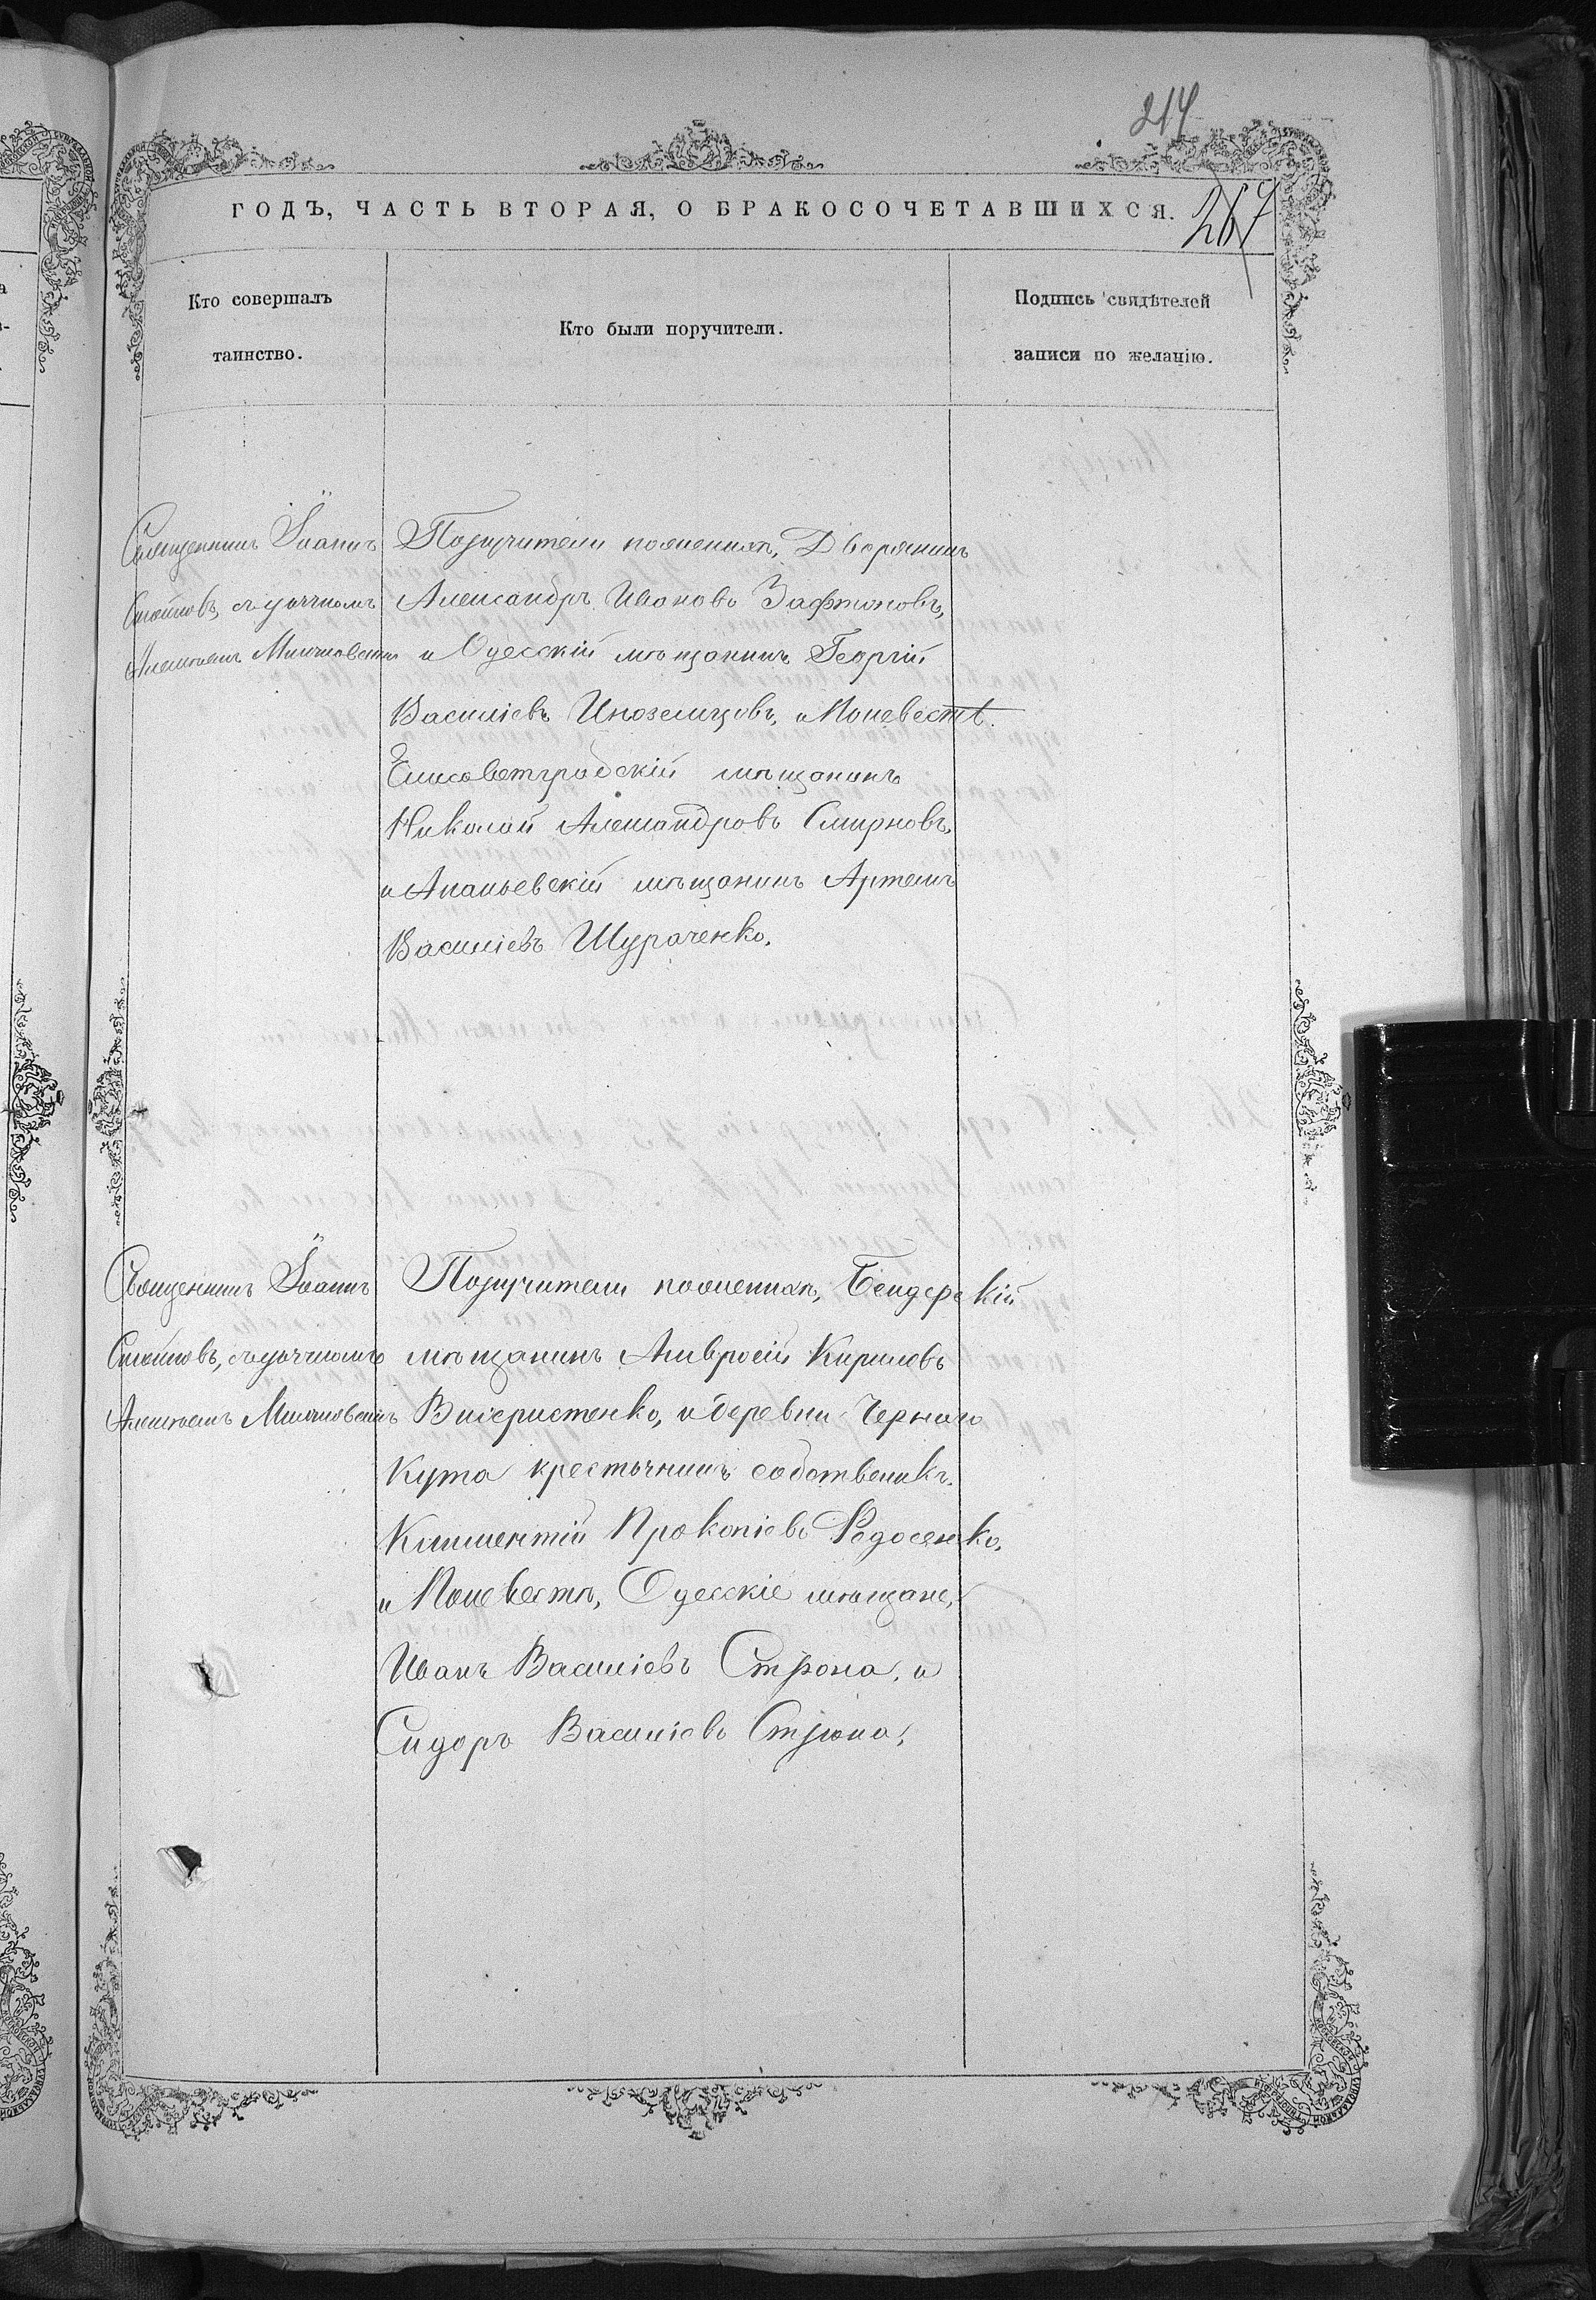 214
ГОДЪ, ЧАСТЬ ВТОРАЯ, О БРАКОСОЧЕТАВШИХСЯ.
Кто совершалъ
таинство.
Кто были поручители.
Подпись свидѣтелей
записи по желанію.
Священникъ Іоаннъ
съ
Поручители по женихѣ, Дворянинъ
Александръ Ивановъ Зафтоновъ,
и Одесскій мѣщанинъ Георгій
Василіевъ Иноземцовъ, и По невестѣ.
Елисаветградскій мѣщанинъ
Николай Александровъ Смирновъ,
и Ананьевскій мѣщанинъ Артемъ
Василіевъ Шураченко.
Священникъ Іоаннъ
Поручители по женихѣ, Бендерскій
мѣщанинъ Амвросій Кириловъ
и деревни Чернаго
Кута крестьянинъ собственикъ
Климентій Прокопіевъ Федосенко,
и По невестѣ, Одесскіе мѣщане,
Иванъ Василіевъ Стрюна, и
Сидоръ Василіевъ Стрюна.